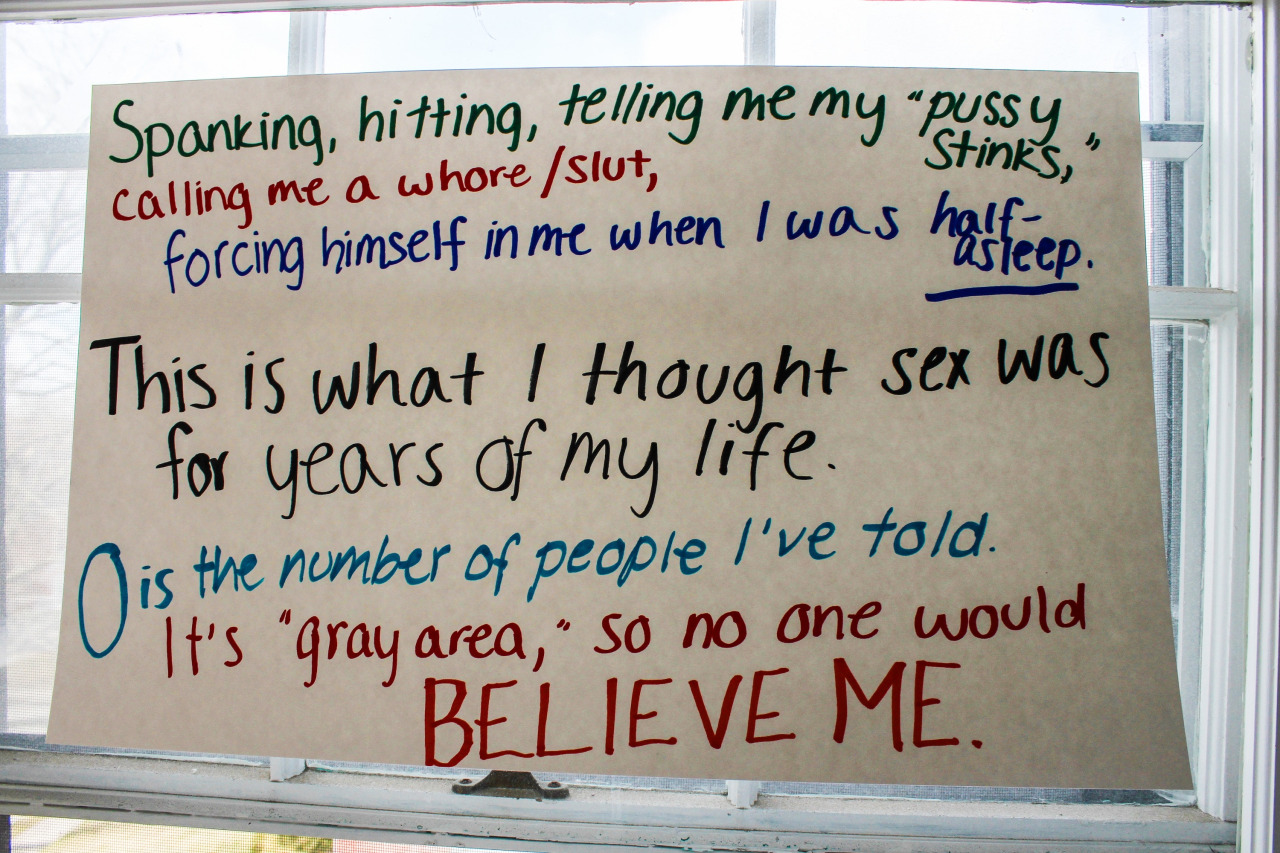 Spanking, hitting, telling me my "pussy
stinks,"
calling me a whore/slut,
forcing himself in me when I was half-
asleep.
This is what I thought sex was
for years of my life.
0 is the number of people I've told.
It's "gray area," so no one would
BELIEVE ME.